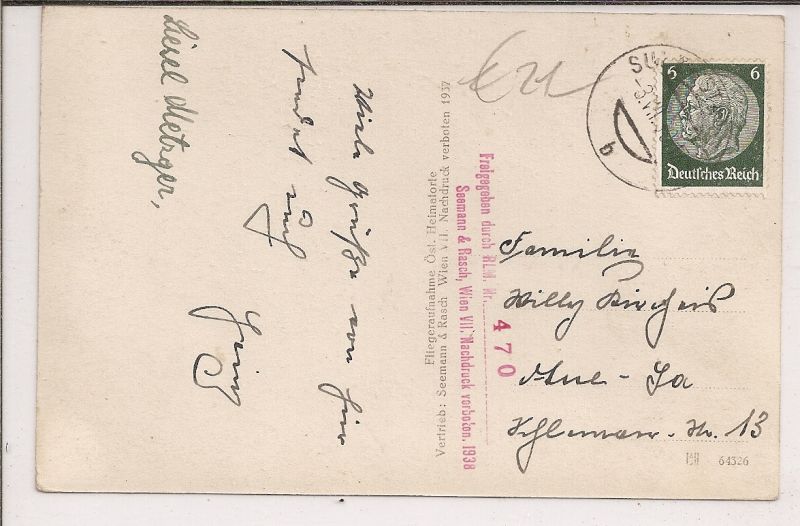 Viele Grüße von hier
sendet Euch
Heinz
Liesel Metzger,
Fliegeraufnahme Öst. Heimatorte
Vertrieb: Seemann & Rasch Wien VII. Nachdruck verboten 1937
Freigegeben durch RLM. Nr. 470
Seemann & Rasch, Wien VII. Nachdruck verboten. 1938
6 6
Deutsches Reich
b
Familie
Willy
Aue - Sa
13
64326